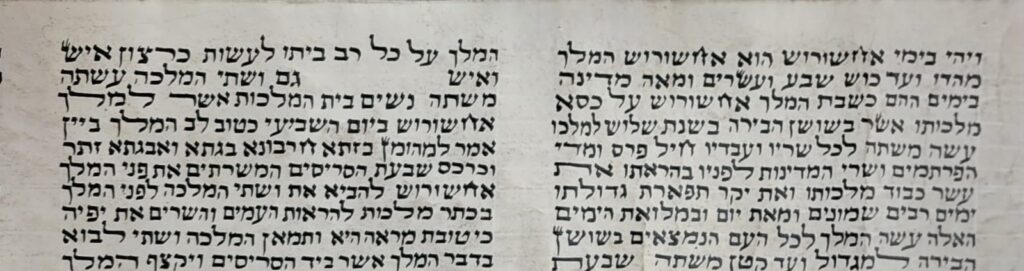 ויהי בימי אחשורוש הוא אחשורוש המלך
מהדו ועד כוש שבע ועשרים ומאה מדינה
בימים ההם כשבת המלך אחשורוש על כסא
מלכותו אשר בשושן הבירה בשנת שלוש למלכו
עשה משתה לכל שריו ועבדיו חיל פרס ומדי
הפרתמים ושרי המדינות לפניו בהראתו את
עשר כבוד מלכותו ואת יקר תפארת גדולתו
ימים רבים שמונים ומאת יום ובמלואת הימים
האלה עשה המלך לכל העם הנמצאים בשושן
הבירה למגדול ועד קטן משתה שבעת
המלך על כל רב ביתו לעשות כרצון איש
ואיש גם ושתי המלכה עשתה
משתה נשים בית המלכות אשר למלך
אחשורוש ביום השביעי כטוב לב המלך ביין
אמר למהומן בזתא חרבונא בגתא ואבגתא זתר
וכרכס שבעת הסריסים המשרתים את פני המלך
אחשורוש להביא את ושתי המלכה לפני המלך
בכתר מלכות להראות העמים והשרים את יפיה
כי טובת מראה היא ותמאן המלכה ושתי לבוא
בדבר המלך אשר ביד הסריסים ויקצף המלך